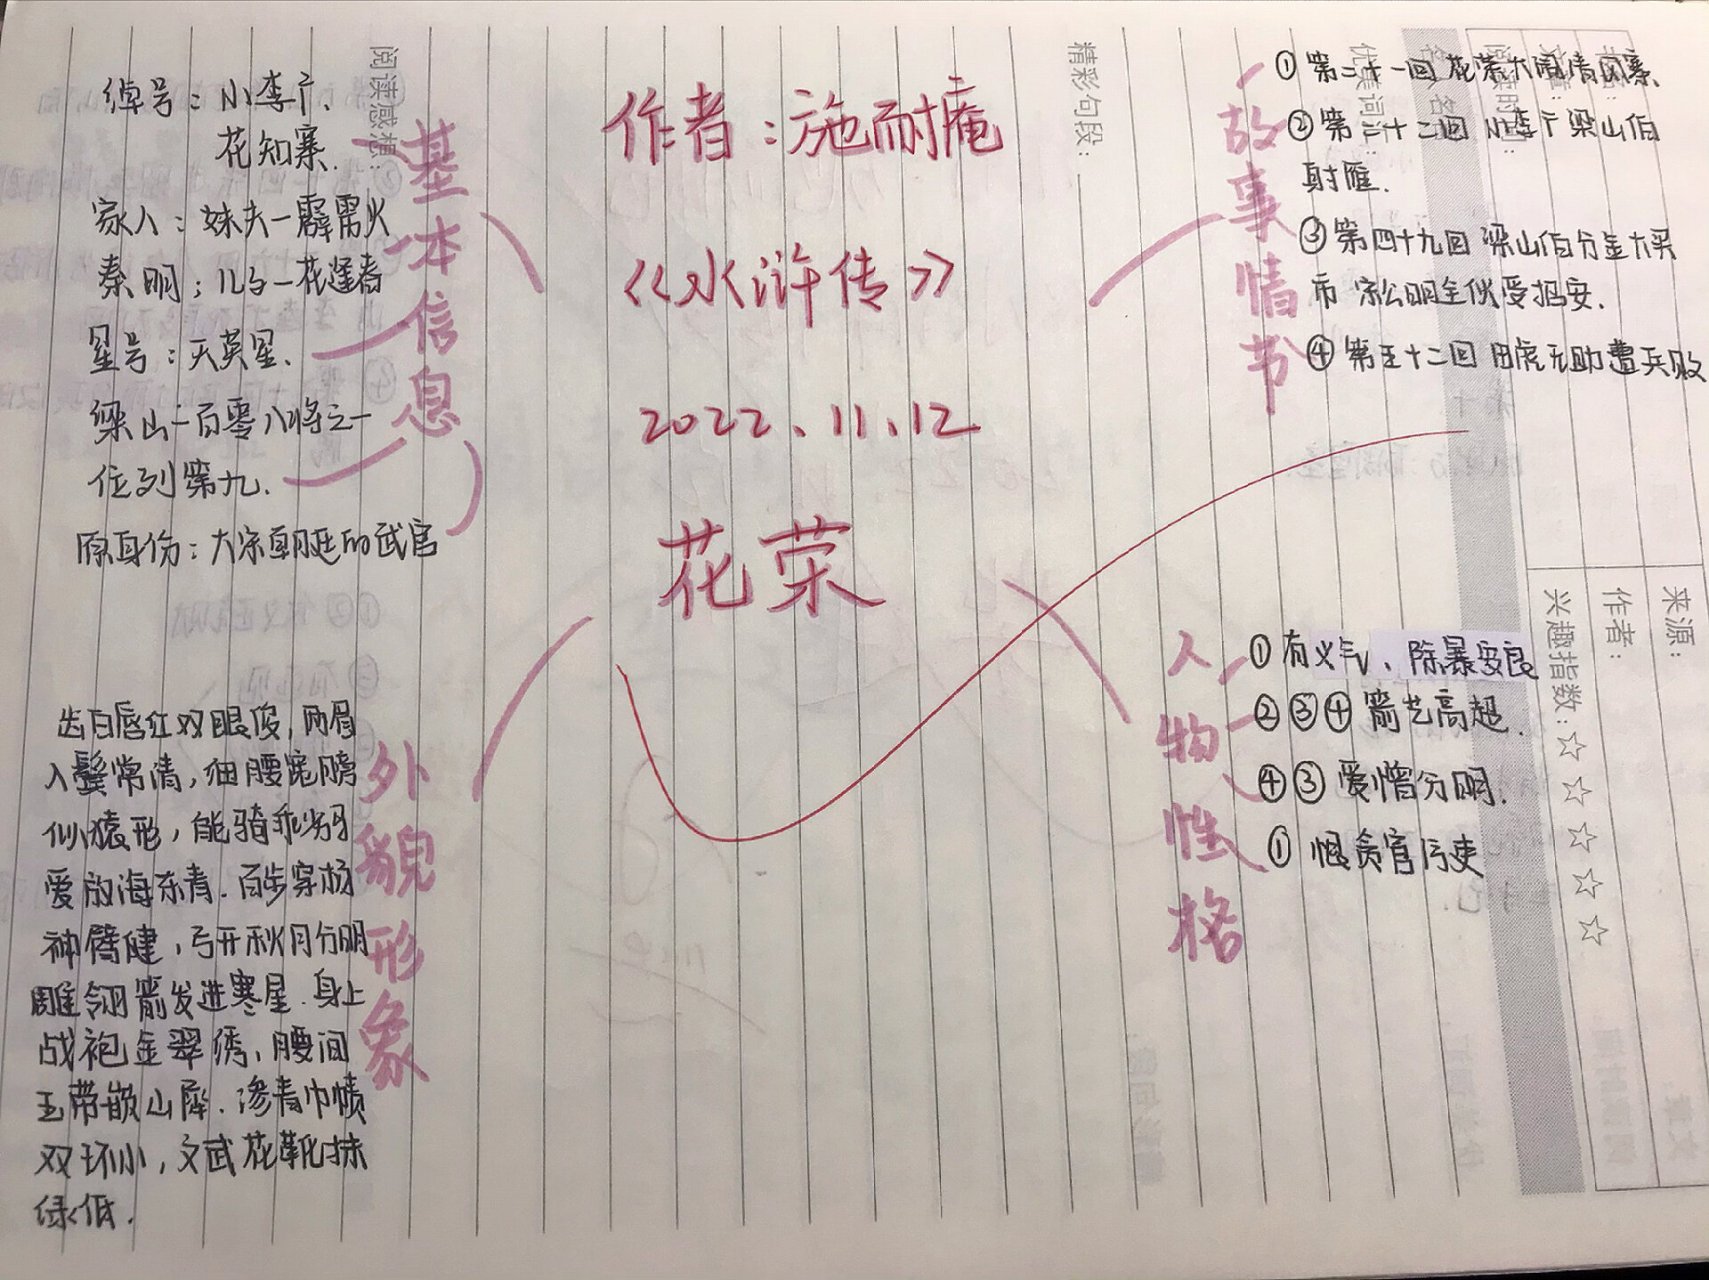 作者：施耐庵
《水浒传》
2022.11.12
花荣
基本信息
绰号：小李广、
花知寨.
家人：妹夫—霹雳火
秦明；儿子—花逢春
星号：天英星.
梁山一百零八将之一
位列第九.
原身份：大宋朝廷的武官
外貌形象
齿白唇红双眼俊，两眉
入鬓常清，细腰宽膀
似猿形，能骑乖劣马
爱放海东青.百步穿杨
神臂健，弓开秋月分明
雕翎箭发迸寒星.身上
战袍金翠绣，腰间
玉带嵌山犀.渗青巾帻
双环小，文武花靴抹
绿低.
故事情节
①第二十一回 花荣大闹清风寨、
②第三十二回 小李广梁山伯
射雁.
③第四十九回 梁山伯分金大买
市 宋公明全伙受招安.
④第五十二回 田虎无助遭兵败
人物性格
①有义气、除暴安良
②③④箭艺高超.
④③爱憎分明.
① 恨贪官污吏
阅读感想：
精彩句段：
优美词汇：
兴趣指数：☆☆☆☆☆
作者：
来源：